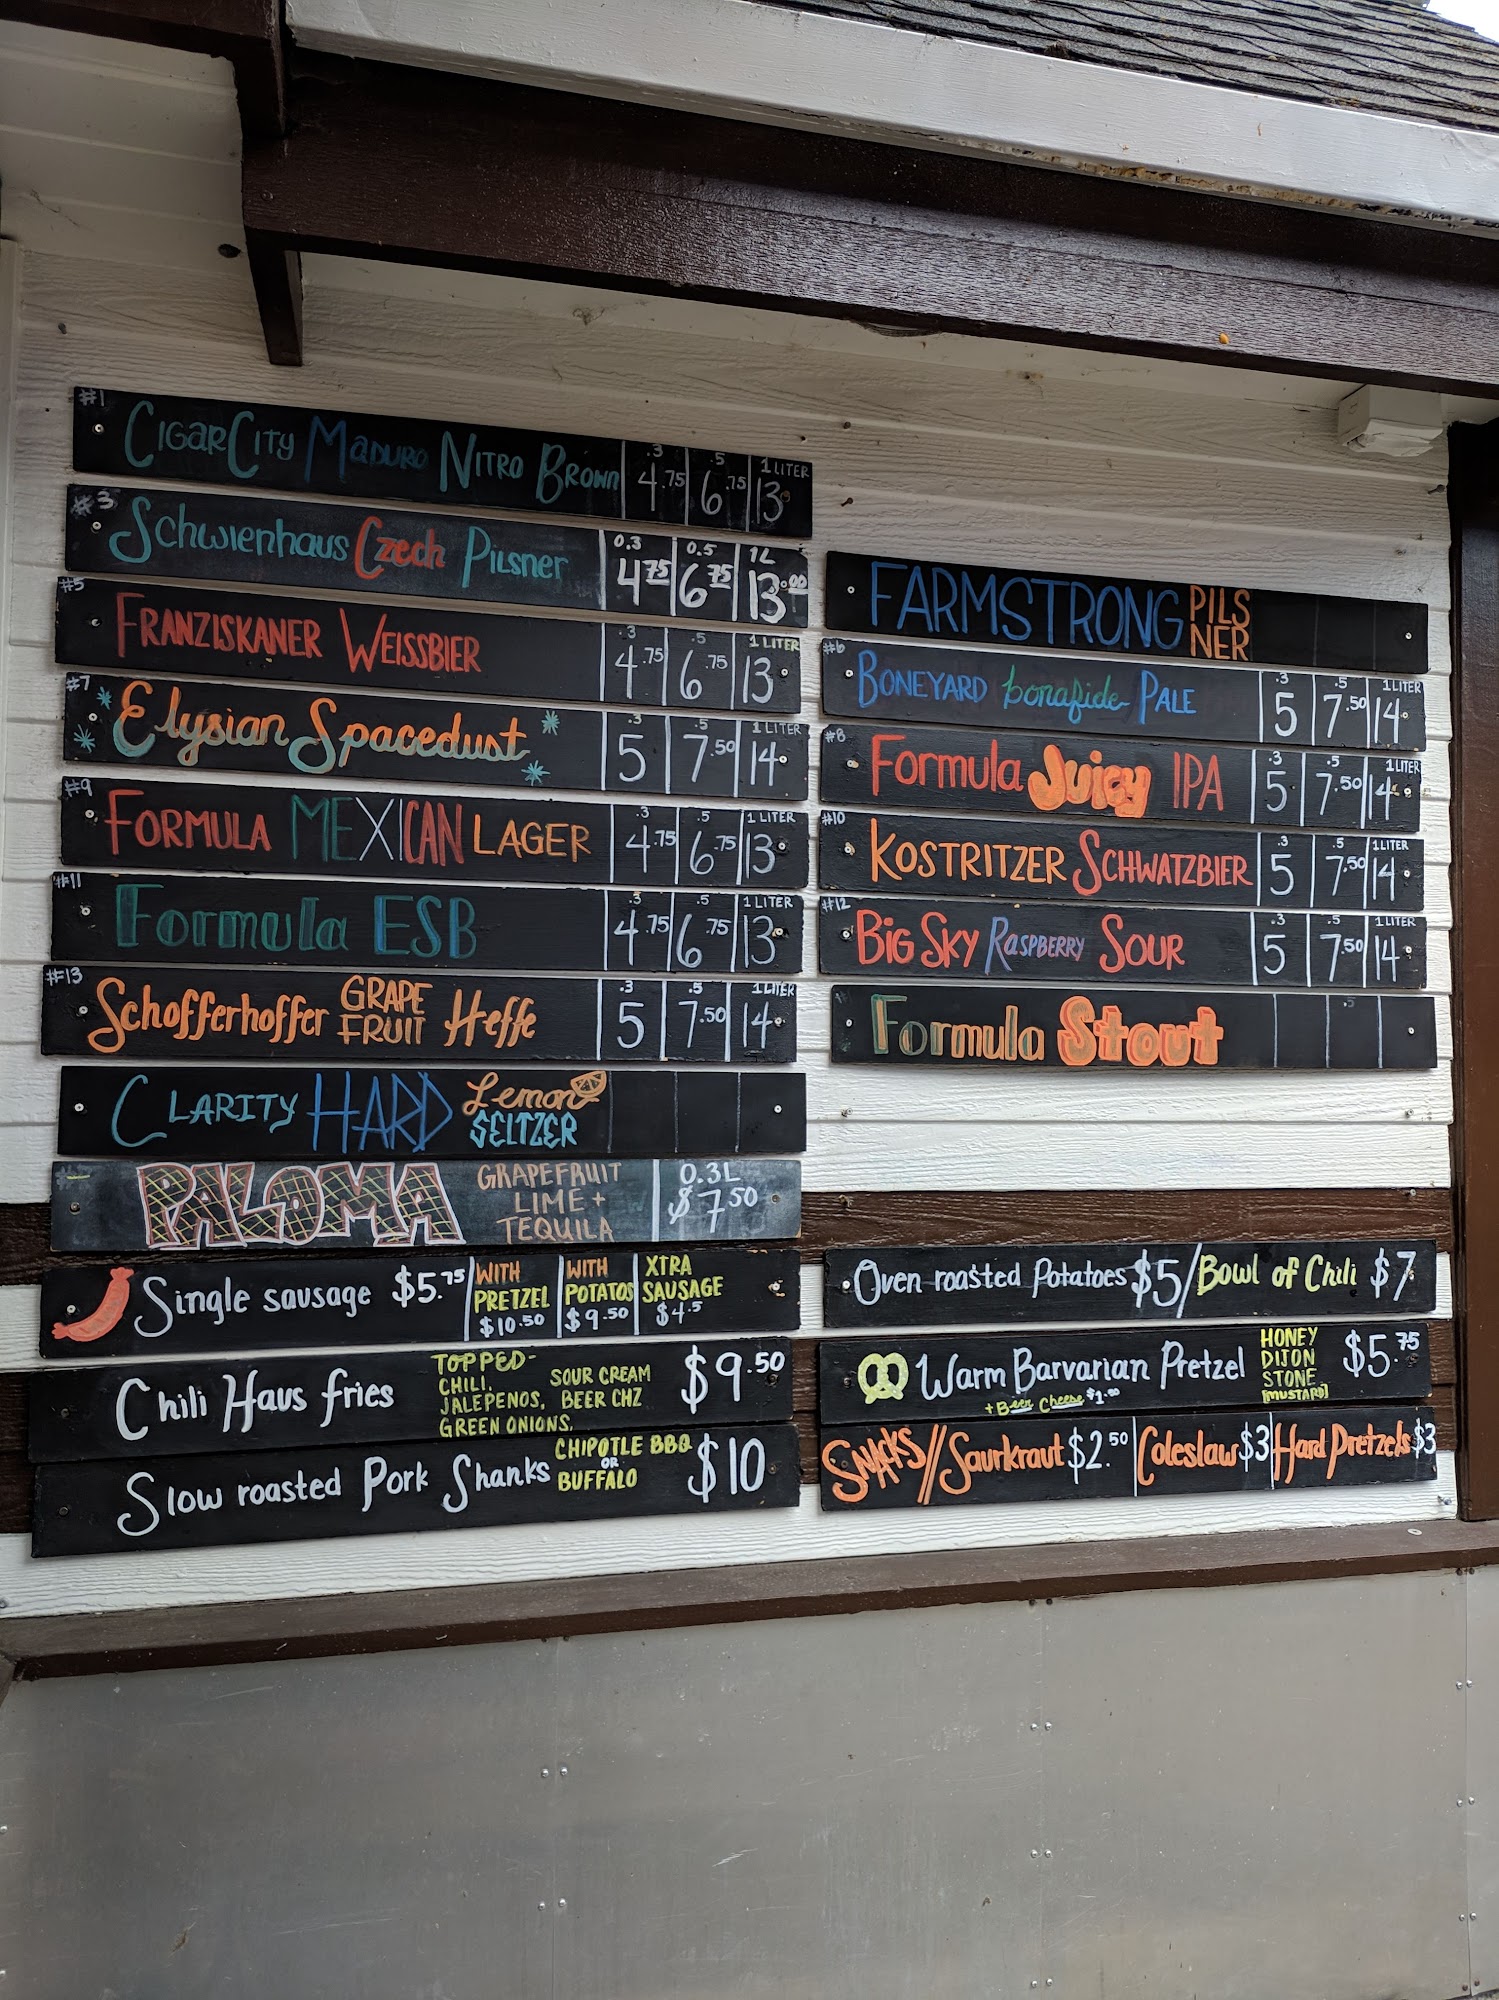 #1 CIGAR CITY MADURO NITRO BROWN .3 4.75 .5 6.75 1 LITER 13
#3 Schwienhaus Czech Pilsner 0.3 4.75 0.5 6.75 1L 13.00
#5 FRANZISKANER WEISSBIER .3 4.75 .5 6.75 1 LITER 13
#7 Elysian Spacedust .3 5 .5 7.50 1 LITER 14
#9 FORMULA MEXICAN LAGER .3 4.75 .5 6.75 1 LITER 13
#11 Formula ESB .3 4.75 .5 6.75 1 LITER 13
#13 Schofferhoffer GRAPE FRUIT Heffe .3 5 .5 7.50 1 LITER 14
CLARITY HARD Lemon SELTZER
PALOMA GRAPEFRUIT LIME + TEQUILA 0.3L $7.50
Single sausage $5.75 WITH PRETZEL $10.50 WITH POTATOS $9.50 XTRA SAUSAGE $4.5
Chili Haus fries TOPPED- CHILI, JALEPENOS, GREEN ONIONS, SOUR CREAM BEER CHZ $9.50
Slow roasted Pork Shanks CHIPOTLE BBQ OR BUFFALO $10
FARMSTRONG PILS NER
#6 BONEYARD bonafide PALE .3 5 .5 7.50 1 LITER 14
#8 Formula Juicy IPA .3 5 .5 7.50 1 LITER 14
#10 KOSTRITZER SCHWATZBIER .3 5 .5 7.50 1 LITER 14
#12 BIG SKY RASPBERRY SOUR .3 5 .5 7.50 1 LITER 14
Formula Stout .5
Oven roasted Potatoes $5/Bowl of Chili $7
Warm Barvarian Pretzel + Beer Cheese $1.00 HONEY DIJON STONE [MUSTARD] $5.75
SNACKS//Saurkraut $2.50 Coleslaw $3 Hard Pretzels $3